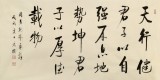 天行健
君子以自
强不息地
势坤君
子以厚德
載物